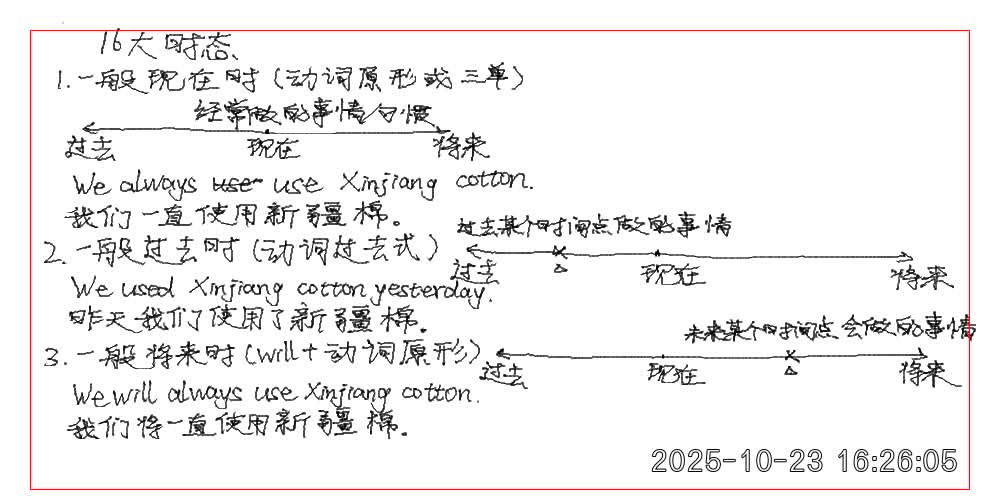 16大时态
1.一般现在时(动词原形或三单)
经常做的事情/习惯
过去 现在 将来
We always use use Xinjiang cotton.
我们一直使用新疆棉。
过去某个时间点做的事情
2.一般过去时(动词过去式)
过去 现在 将来
We used Xinjiang cotton yesterday.
昨天我们使用了新疆棉。
未来某个时间点会做的事情
3.一般将来时(will+动词原形)
过去 现在 将来
We will always use Xinjiang cotton.
我们将一直使用新疆棉。
2025-10-23 16:26:05